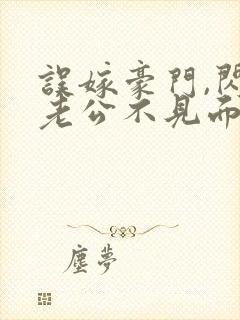 誤嫁豪門,閃
老公不見而
塵夢